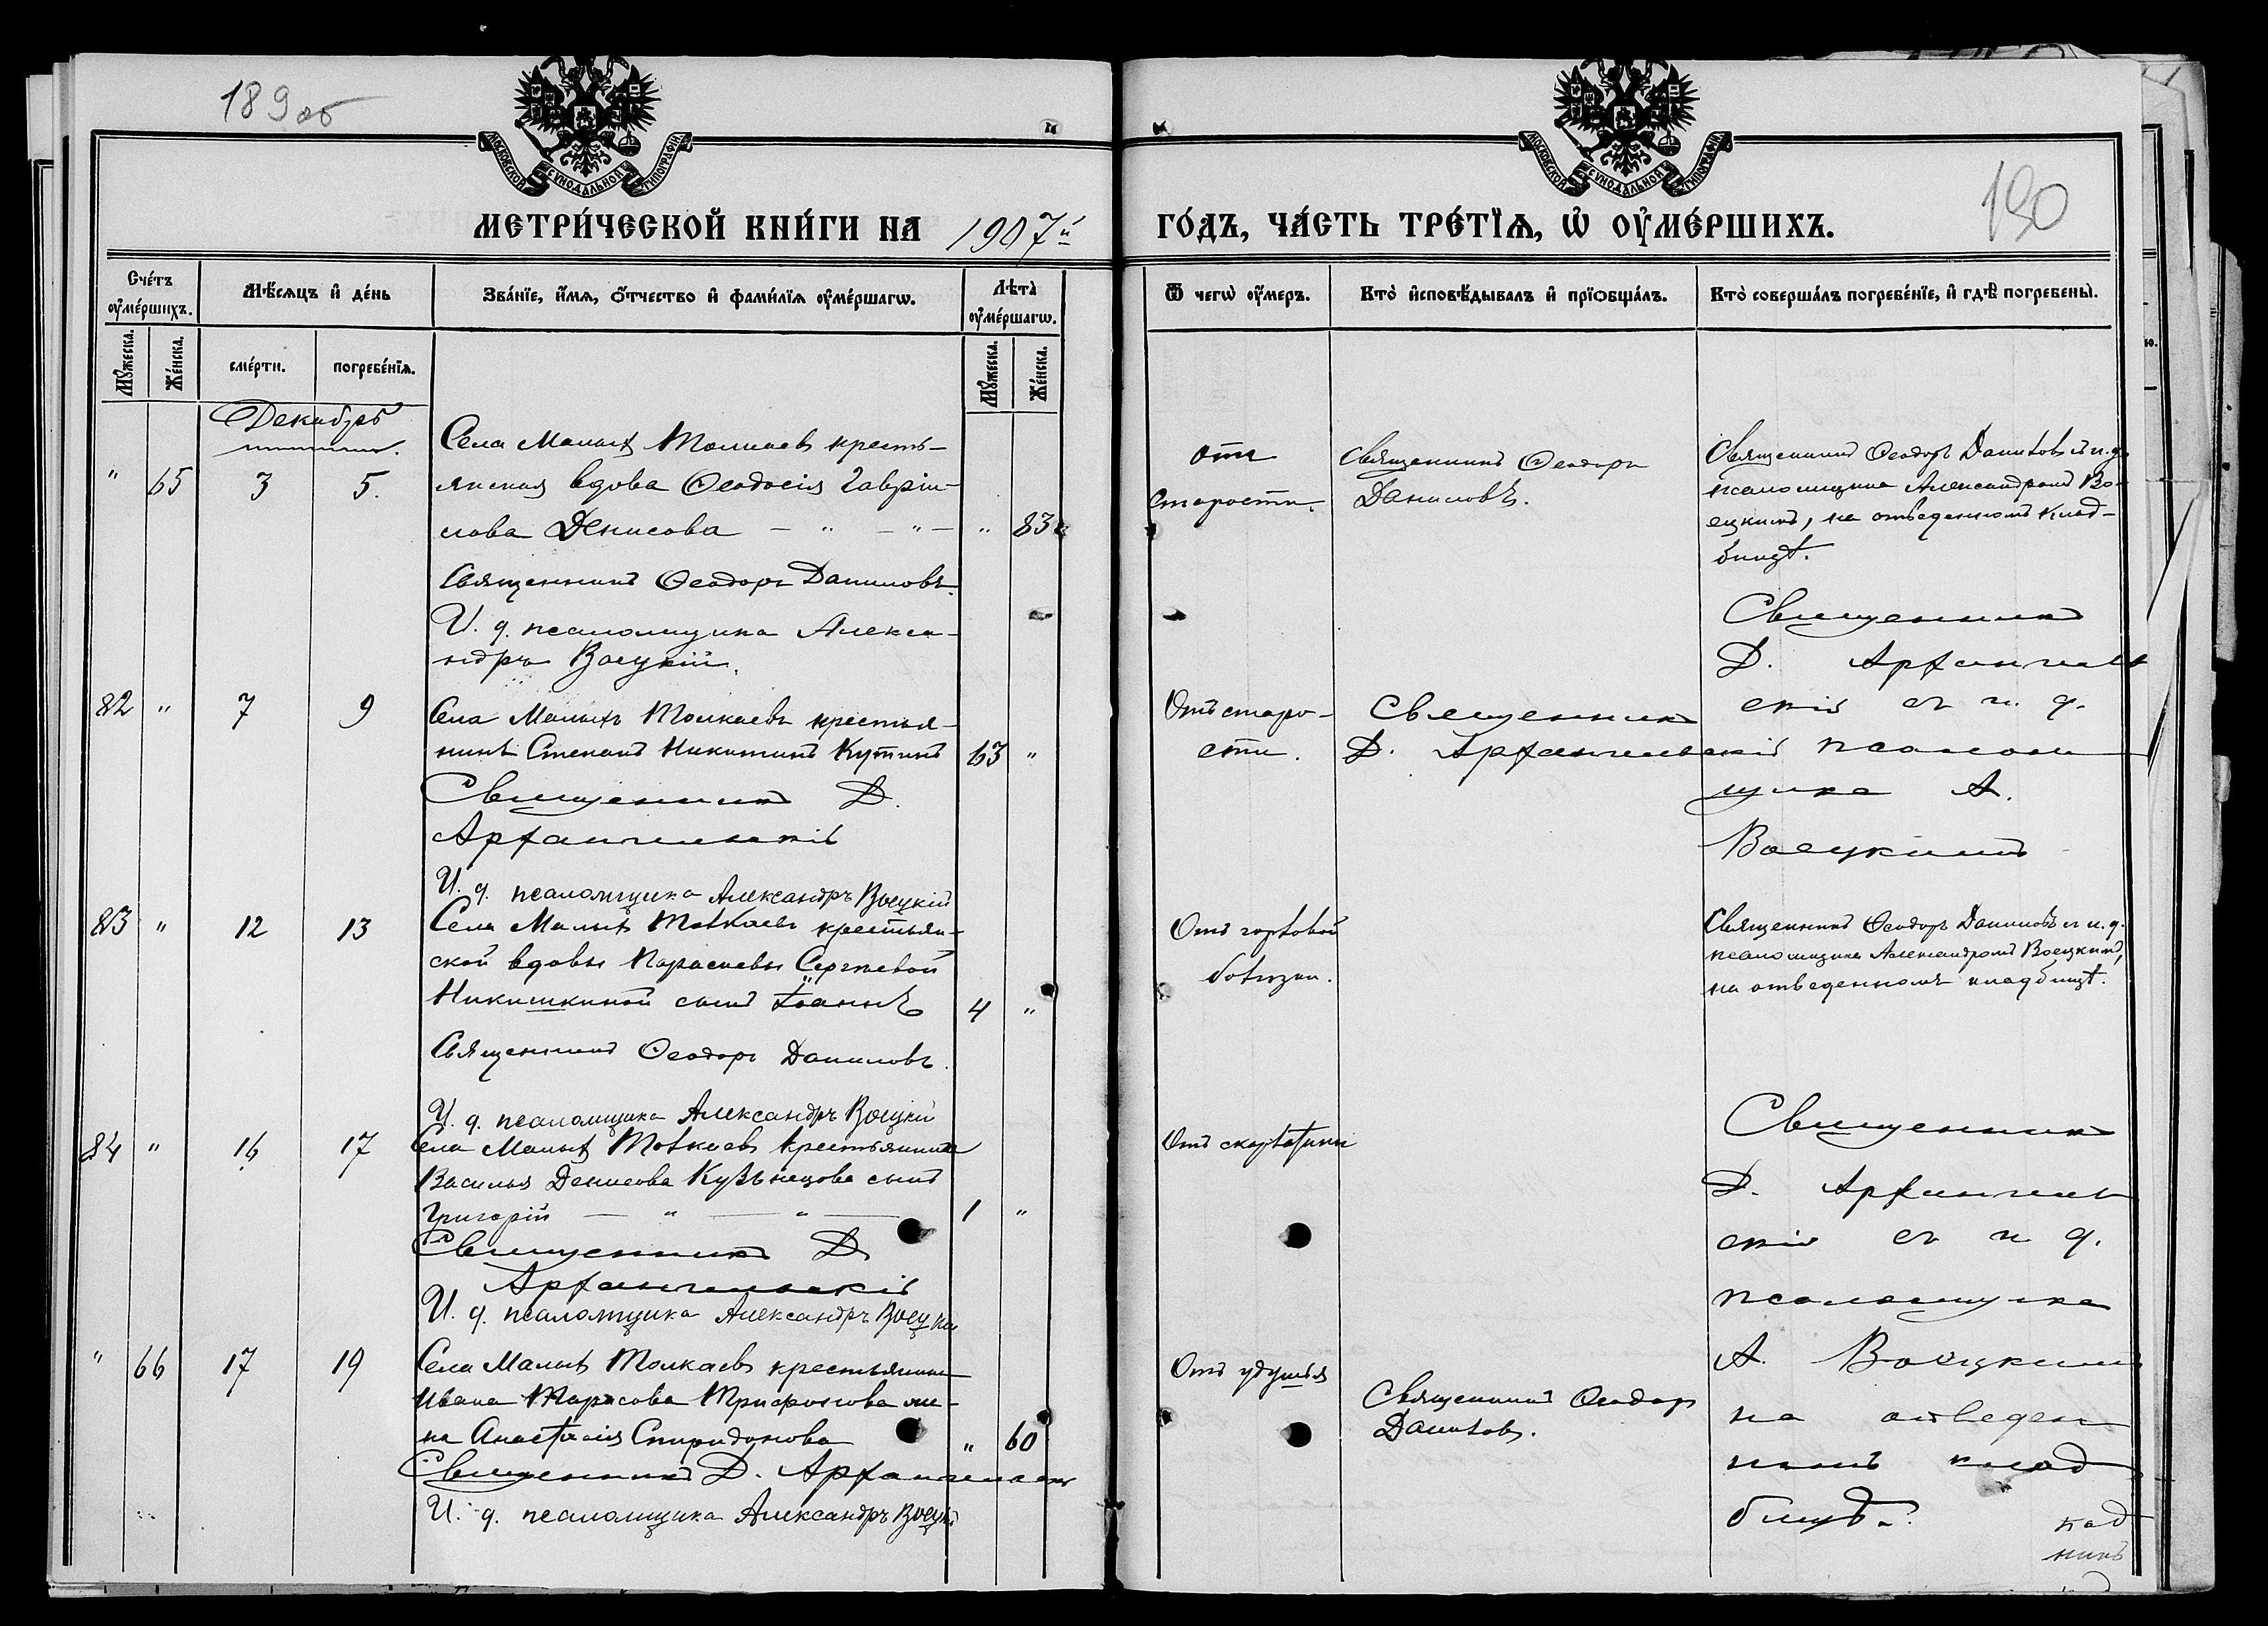 189 об
190
МОСКОВСКОЙ СѴНОДАЛЬНОЙ ТИПОГРАФІИ
МОСКОВСКОЙ СѴНОДАЛЬНОЙ ТИПОГРАФІИ
МЕТРИ́ЧЕСКОЙ КНИ́ГИ НА 1907й ГО́ДЪ, ЧА́СТЬ ТРЕ́ТІѦ, Ѡ ОУМЕ́РШИХЪ.
Сче́тъ оуме́ршихъ.
Мꙋжеска.
Же́нска.
Мѣ́сѧцъ и де́нь
сме́рти.
погребе́нїѧ.
Зва́нїе, и́мѧ, о́тчество и фами́лїѧ оуме́ршагѡ.
Лѣта̀ оуме́ршагѡ.
Мꙋжеска.
Же́нска.
Ѿ чегѡ̀ оу́меръ.
Кто̀ исповѣ́дывалъ и прїѡбща́лъ.
Кто̀ соверша́лъ погребе́нїе, и гдѣ̀ погребены̀.
Декабрь
" 65 3 5.
Села Малыхъ Толкаевъ кресть-
янская вдова Ѳеодосія Гаврiи-
лова Денисова — " — " — " 83
Священникъ Ѳеодоръ Даниловъ.
И. д. псаломщика Алекса-
ндръ Воецкій.
отъ
старости.
Священникъ Ѳеодоръ
Даниловъ.
Священникъ Ѳеодоръ Даниловъ съ и. д.
псаломщика Александромъ Во-
ецкимъ, на отведенномъ клад-
бищѣ.
82 " 7 9
Села Малыхъ Толкаевъ крестья-
нинъ Степанъ Никитинъ Кутинъ 63 "
Священникъ Д.
Архангельскій
И. д. псаломщика Александръ Воецкій
Отъ старо-
сти.
Священникъ
Д. Архангельскій
Священникъ
Д. Архангель
скій съ и. д.
псалом
щика А.
Воецкимъ
83 " 12 13
Села Малыхъ Толкаевъ крестьян-
ской вдовы Параскевы Сергеевой
Никишкиной сынъ Іоаннъ 4 "
Священникъ Ѳеодоръ Даниловъ.
И. д. псаломщика Александръ Воецкій
Отъ горловой
болѣзни.
Священникъ Ѳеодоръ Даниловъ съ и. д.
псаломщика Александромъ Воецкимъ,
на отведенномъ кладбищѣ.
84 " 16 17
Села Малыхъ Толкаевъ крестьянина
Василья Денисова Кузьнецова сынъ
Григорій — " — " — 1 "
Священникъ Д
Архангельскій
И. д. псаломщика Александръ Воецкій
Отъ скарлатины
Священникъ
Д. Архангель
скій съ и д.
псаломщика
А. Воецкимъ
на отведен
номъ клад
бищѣ.
" 66 17 19
Села Малыхъ Толкаевъ крестьянина
Ивана Тарасова Трифонова же-
на Анастасія Спиридонова " 60
Священникъ Д. Архангельскій
И. д. псаломщика Александръ Воецкій
Отъ удушья
Священникъ Ѳеодоръ
Даниловъ.